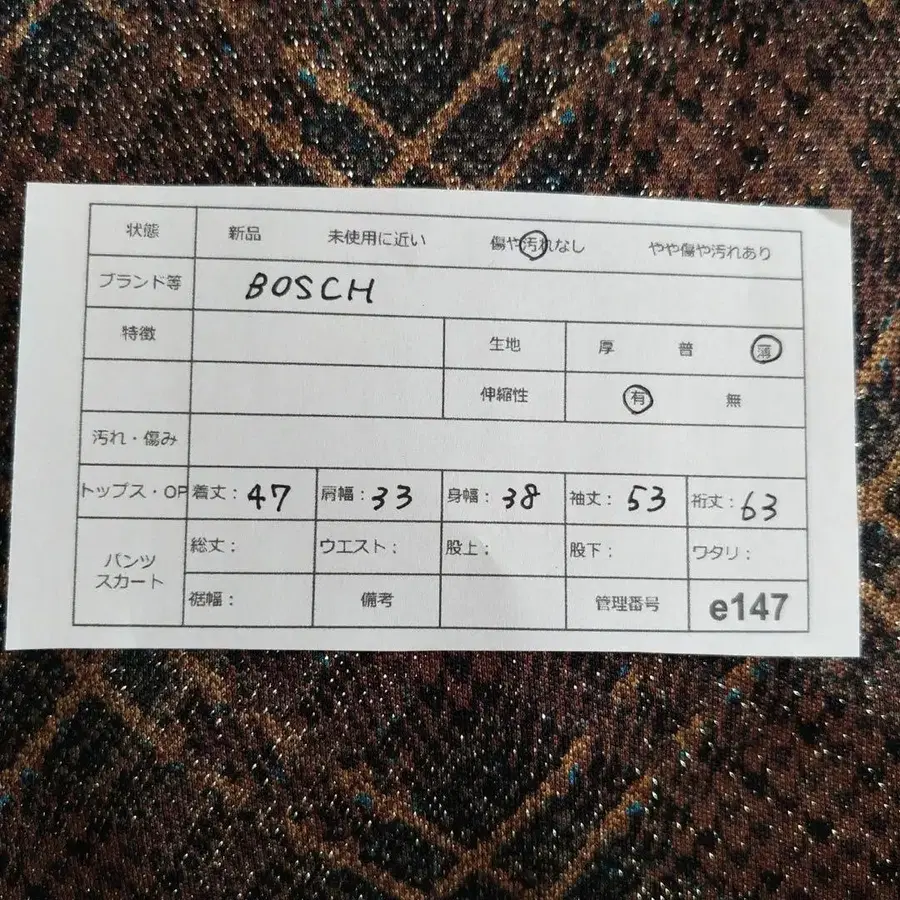 状態 新品 未使用に近い 傷や汚れなし やや傷や汚れあり
ブランド等 BOSCH
特徴 生地 厚 普 薄
伸縮性 有 無
汚れ・傷み
トップス・OP 着丈: 47 肩幅: 33 身幅: 38 袖丈: 53 裄丈: 63
パンツ スカート 総丈: ウエスト: 股上: 股下: ワタリ:
裾幅: 備考 管理番号 e147